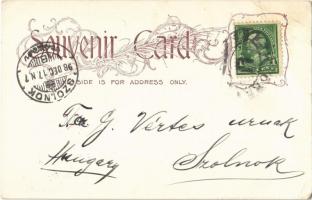 Souvenir Card
SIDE IS FOR ADDRESS ONLY.
SZOLNOK
98 DEC. 17.
G. Vértes urnak
Hungary
Szolnok